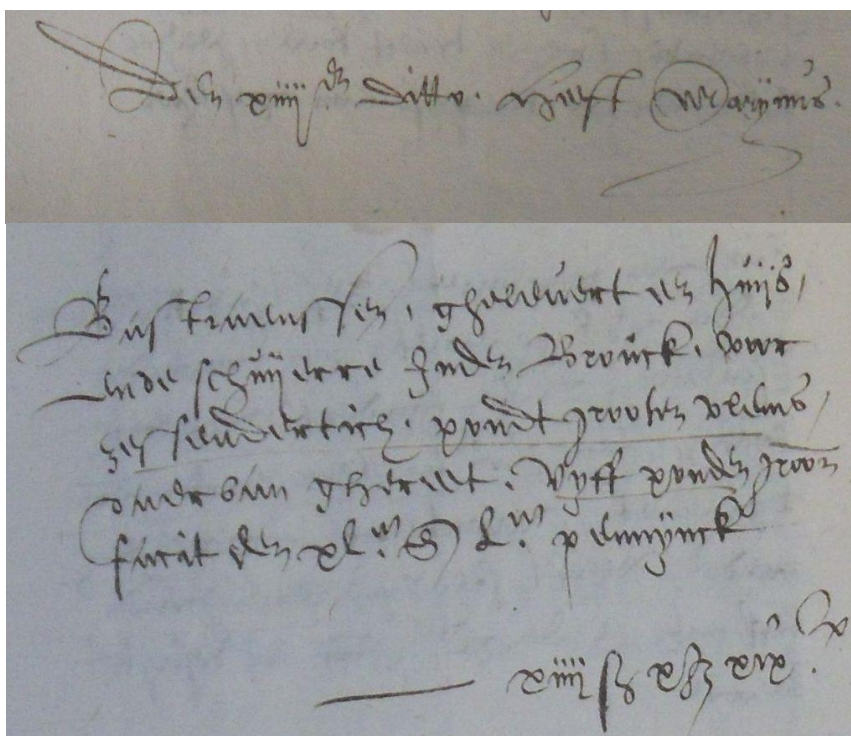 Den xiiij en ditto. heeft Marijnis.
Bastiaenssen, ghelevert en huijs,
ende schuijerre Inden Brouck, voor
zessendertich, pondt grooten vlems,
daer van ghereet, Vijff ponden groon
facit den xl.en L.en pennijnck
xiiij ß x xix.